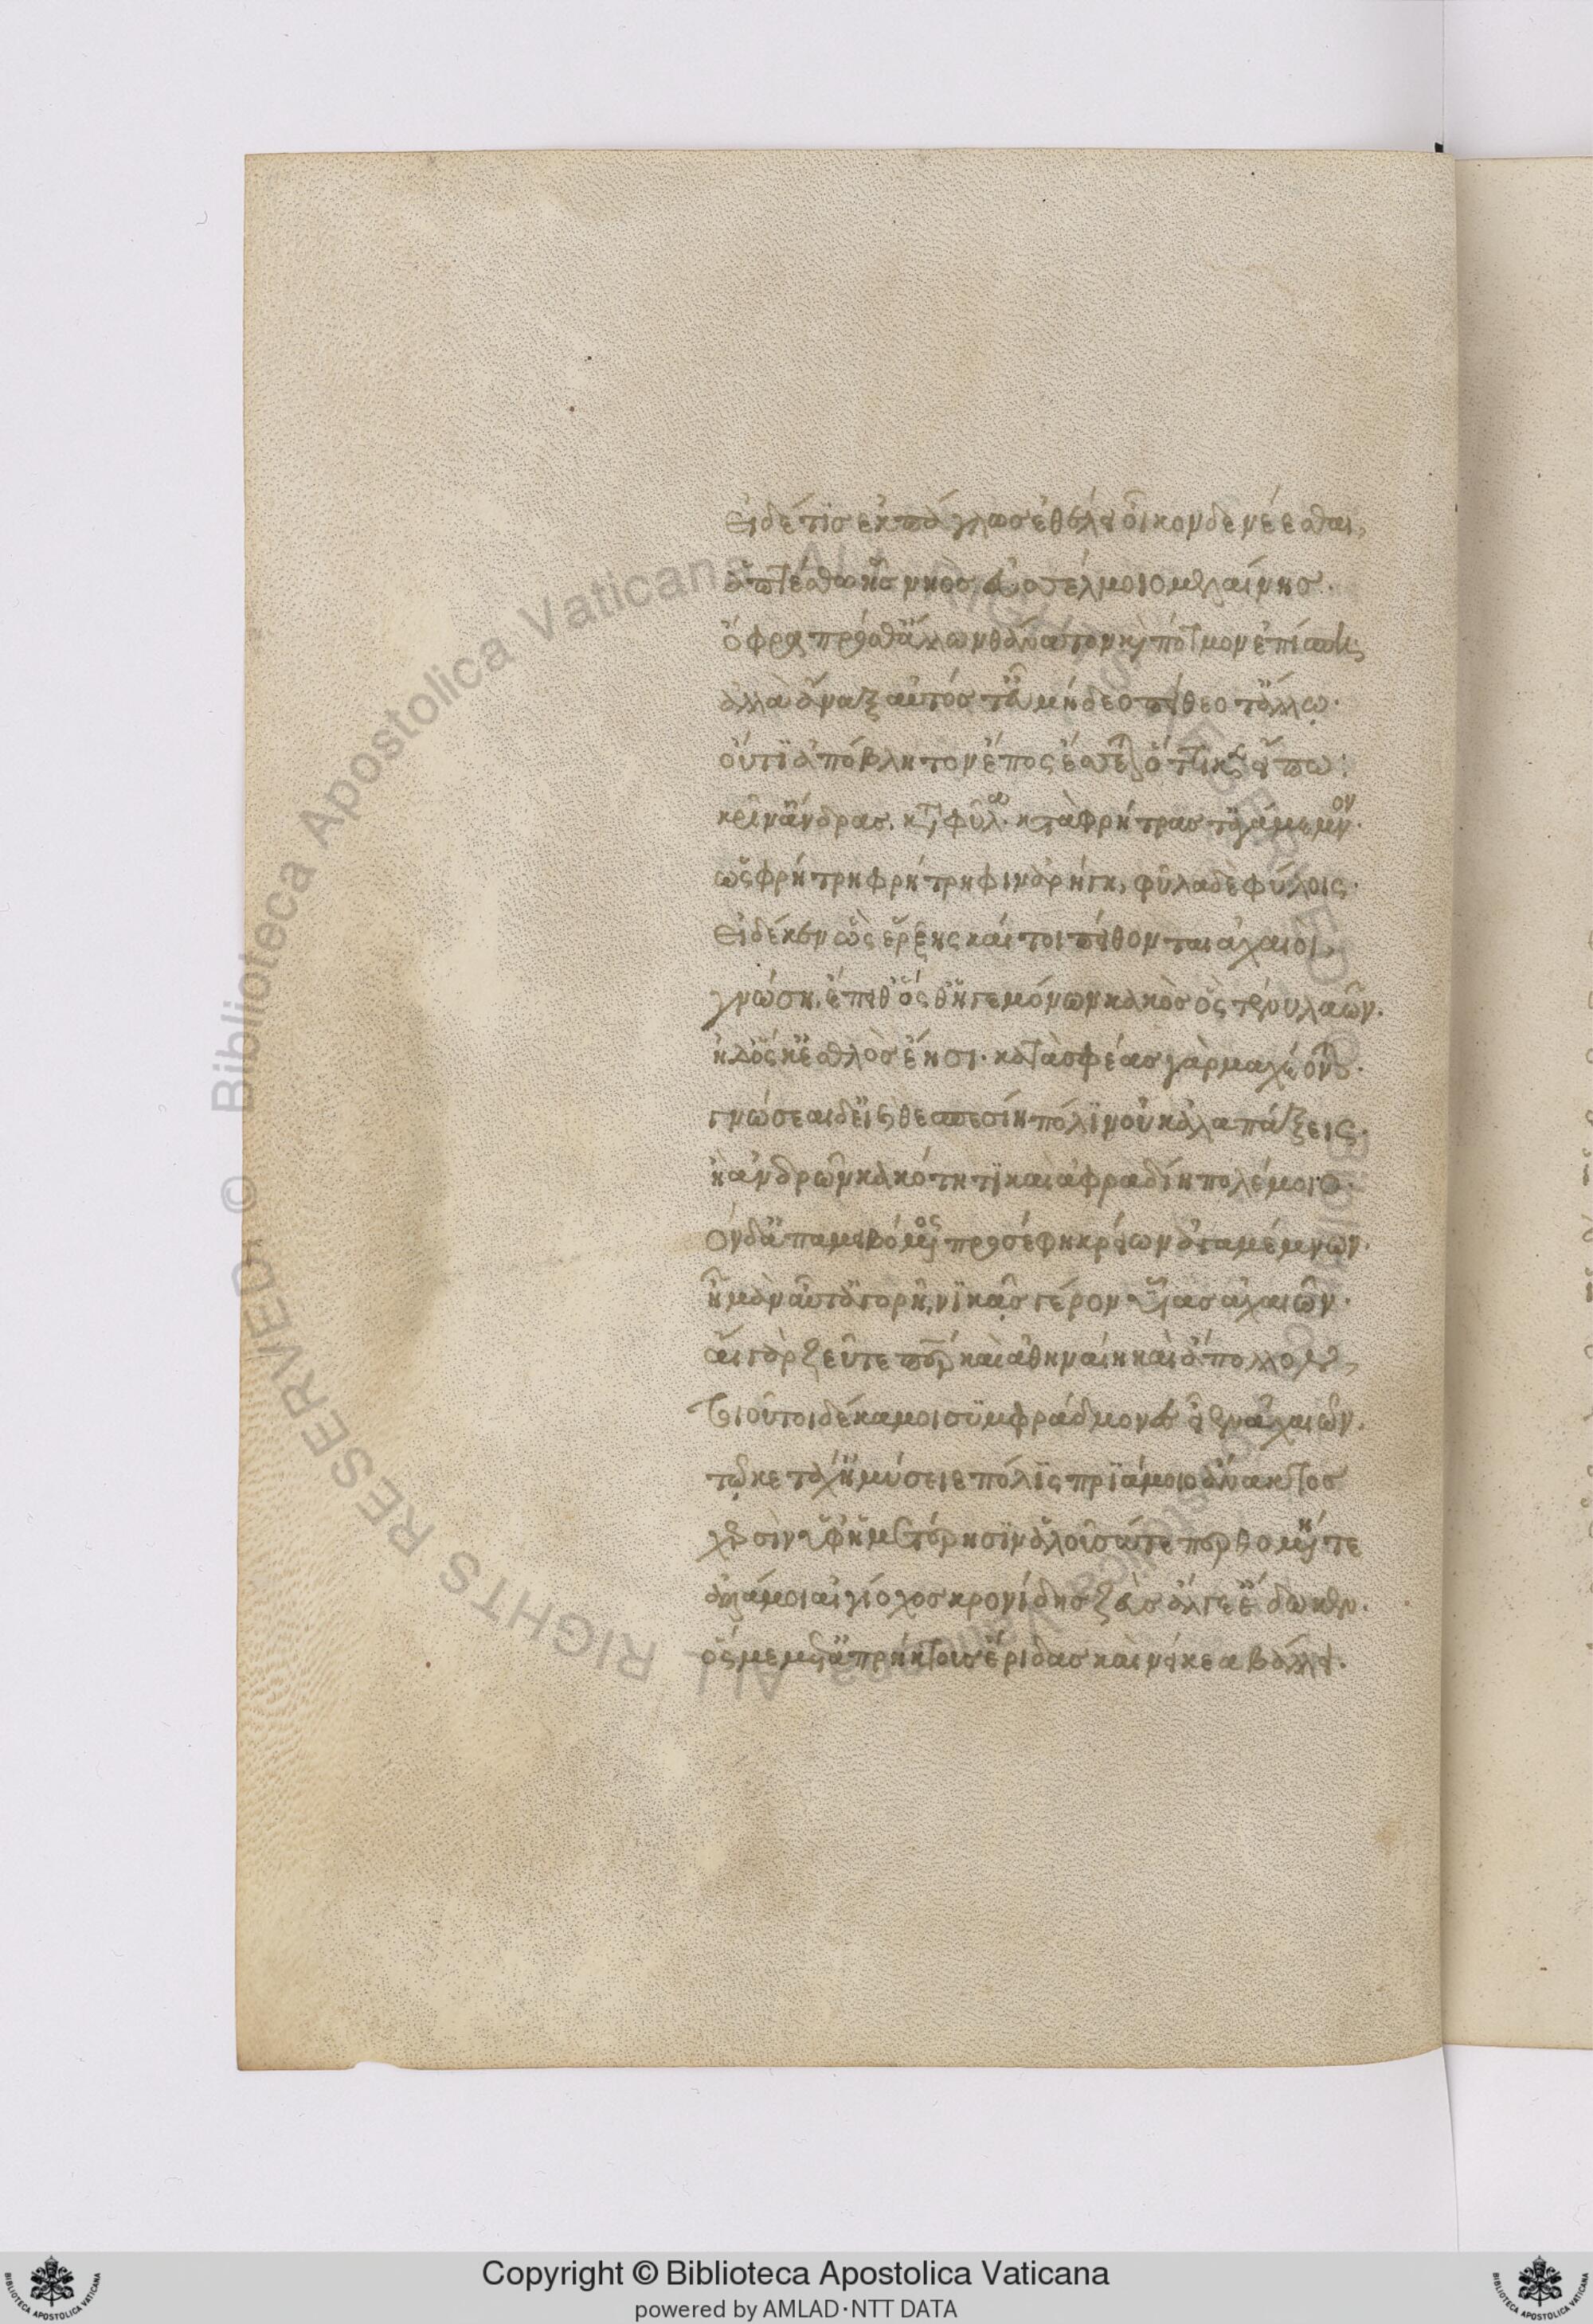 εἰ δέ τις ἐκπάγλως ἐθέλει οἶκον δὲ νέεσθαι,
ἁπτέσθω ἧς νηὸς ἐϋσσέλμοιο μελαίνης.
ὄφρα πρόσθ' ἄλλων θάνατον κ(αὶ) πότμον ἐπίσπῃ
ἀλλὰ ἄναξ αὐτός τ' εὖ μήδεο πείθεό τ' ἄλλῳ.
οὔτϊ ἀπόβλητον ἔπος ἔσσεται ὅττι κεν εἴπω:
κρῖν' ἄνδρας κατὰ φῦλα κατὰ φρήτρας ἀγάμεμνον.
ὡς φρήτρη φρήτρηφιν ἀρήγη, φῦλα δὲ φύλοις.
εἰ δέ κεν ὣς ἔρξης καί τοι πείθονται ἀχαιοὶ,
γνώση ἔπειθ' ὅς θ' ἡγεμόνων κακὸς ὅς τέ νυ λαῶν.
ἠδ' ὅς κ' ἐσθλὸς ἔησι. κατὰ σφέας γὰρ μαχέονται.
γνώσεαι δ' εἰ θεσπεσίη πόλϊν οὐκ ἀλαπάξεις.
ἢ ἀνδρῶν κακότητϊ καὶ ἀφραδίη πολέμοιο.
Τὸν δ' ἀπαμειβόμενος προσέφη κρείων ἀγαμέμνων.
ἦ μὰν αὖτ' ἀγορῆ νϊκᾷς γέρον υἷας ἀχαιῶν.
αἲ γὰρ ζεῦ τε πάτερ καὶ ἀθηναίη καὶ ἄπολλον,
τοιοῦτοι δέκα μοι συμφράδμονες εἶεν ἀχαιῶν.
τῷ κε τάχ' ἠμύσειε πόλϊς πρϊάμοιο ἄνακτος
χερσὶν ὑφ' ἡμετέρησϊν ἁλοῦσά τε περθομένη τε
ἀλλά μοι αἰγίοχος κρονίδης ζεὺς ἄλγε' ἔδωκεν.
ὅς με μετ' ἀπρήκτους ἔριδας καὶ νείκεα βάλλει.
Copyright © Biblioteca Apostolica Vaticana
powered by AMLAD·NTT DATA